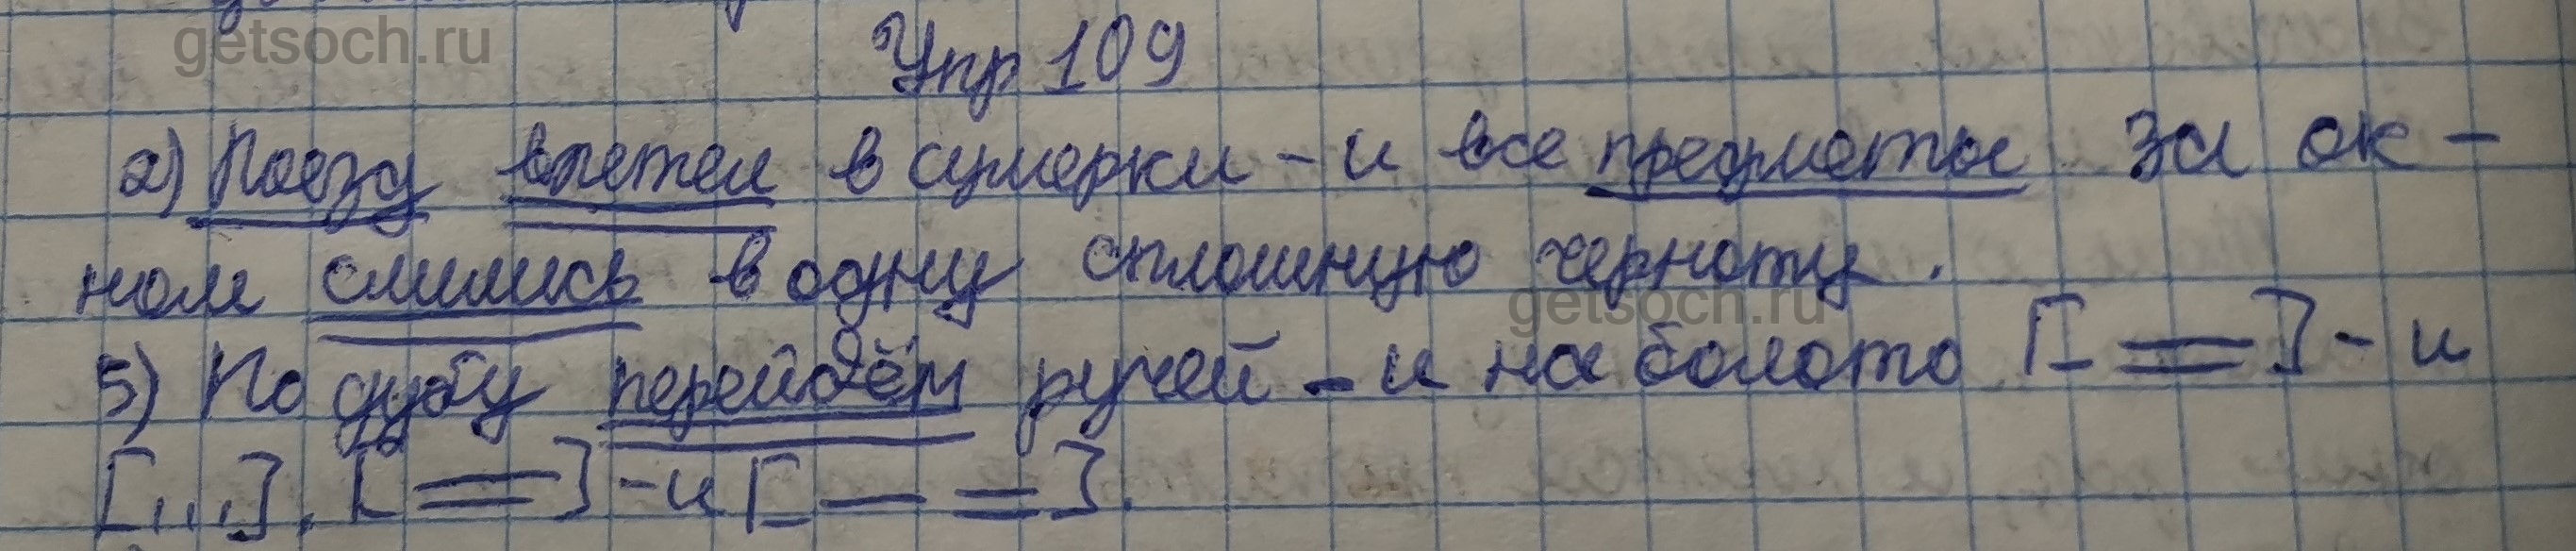 getsoch.ru
Упр 109
2) Поезд влетел в сумерки – и все предметы за ок-
ном слились в одну сплошную черноту.
getsoch.ru
5) По дубу перейдём ручей – и на болото [– =] – и
[...], [=] – и [– =].